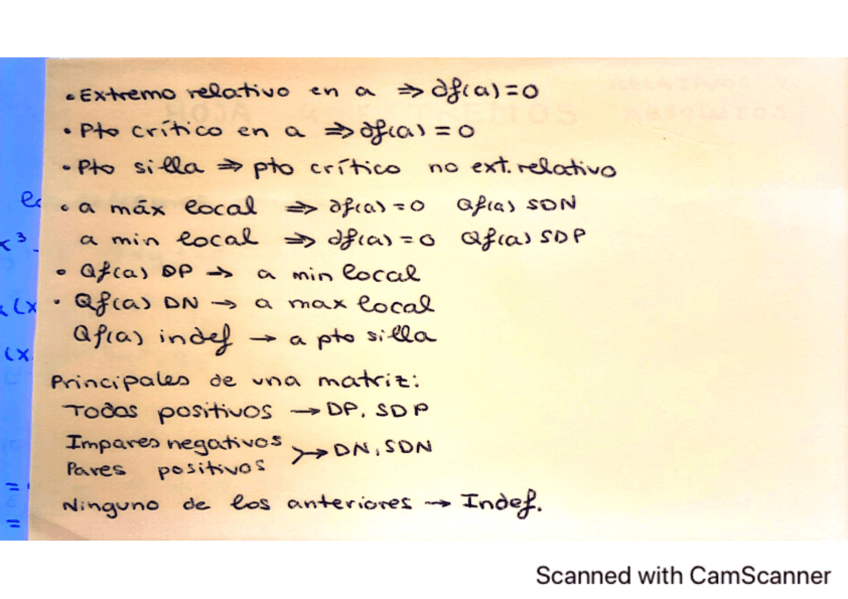 • Extremo relativo en a ⇒ ∂f(a)=0
• Pto crítico en a ⇒ ∂f(a)=0
• Pto silla ⇒ pto crítico no ext. relativo
• a máx local ⇒ ∂f(a)=0 Qf(a) SDN
a min local ⇒ ∂f(a)=0 Qf(a) SDP
• Qf(a) DP → a min local
• Qf(a) DN → a max local
Qf(a) indef → a pto silla
Principales de una matriz:
Todos positivos → DP, SDP
Impares negativos
Pares positivos >→ DN, SDN
Ninguno de los anteriores → Indef.
Scanned with CamScanner